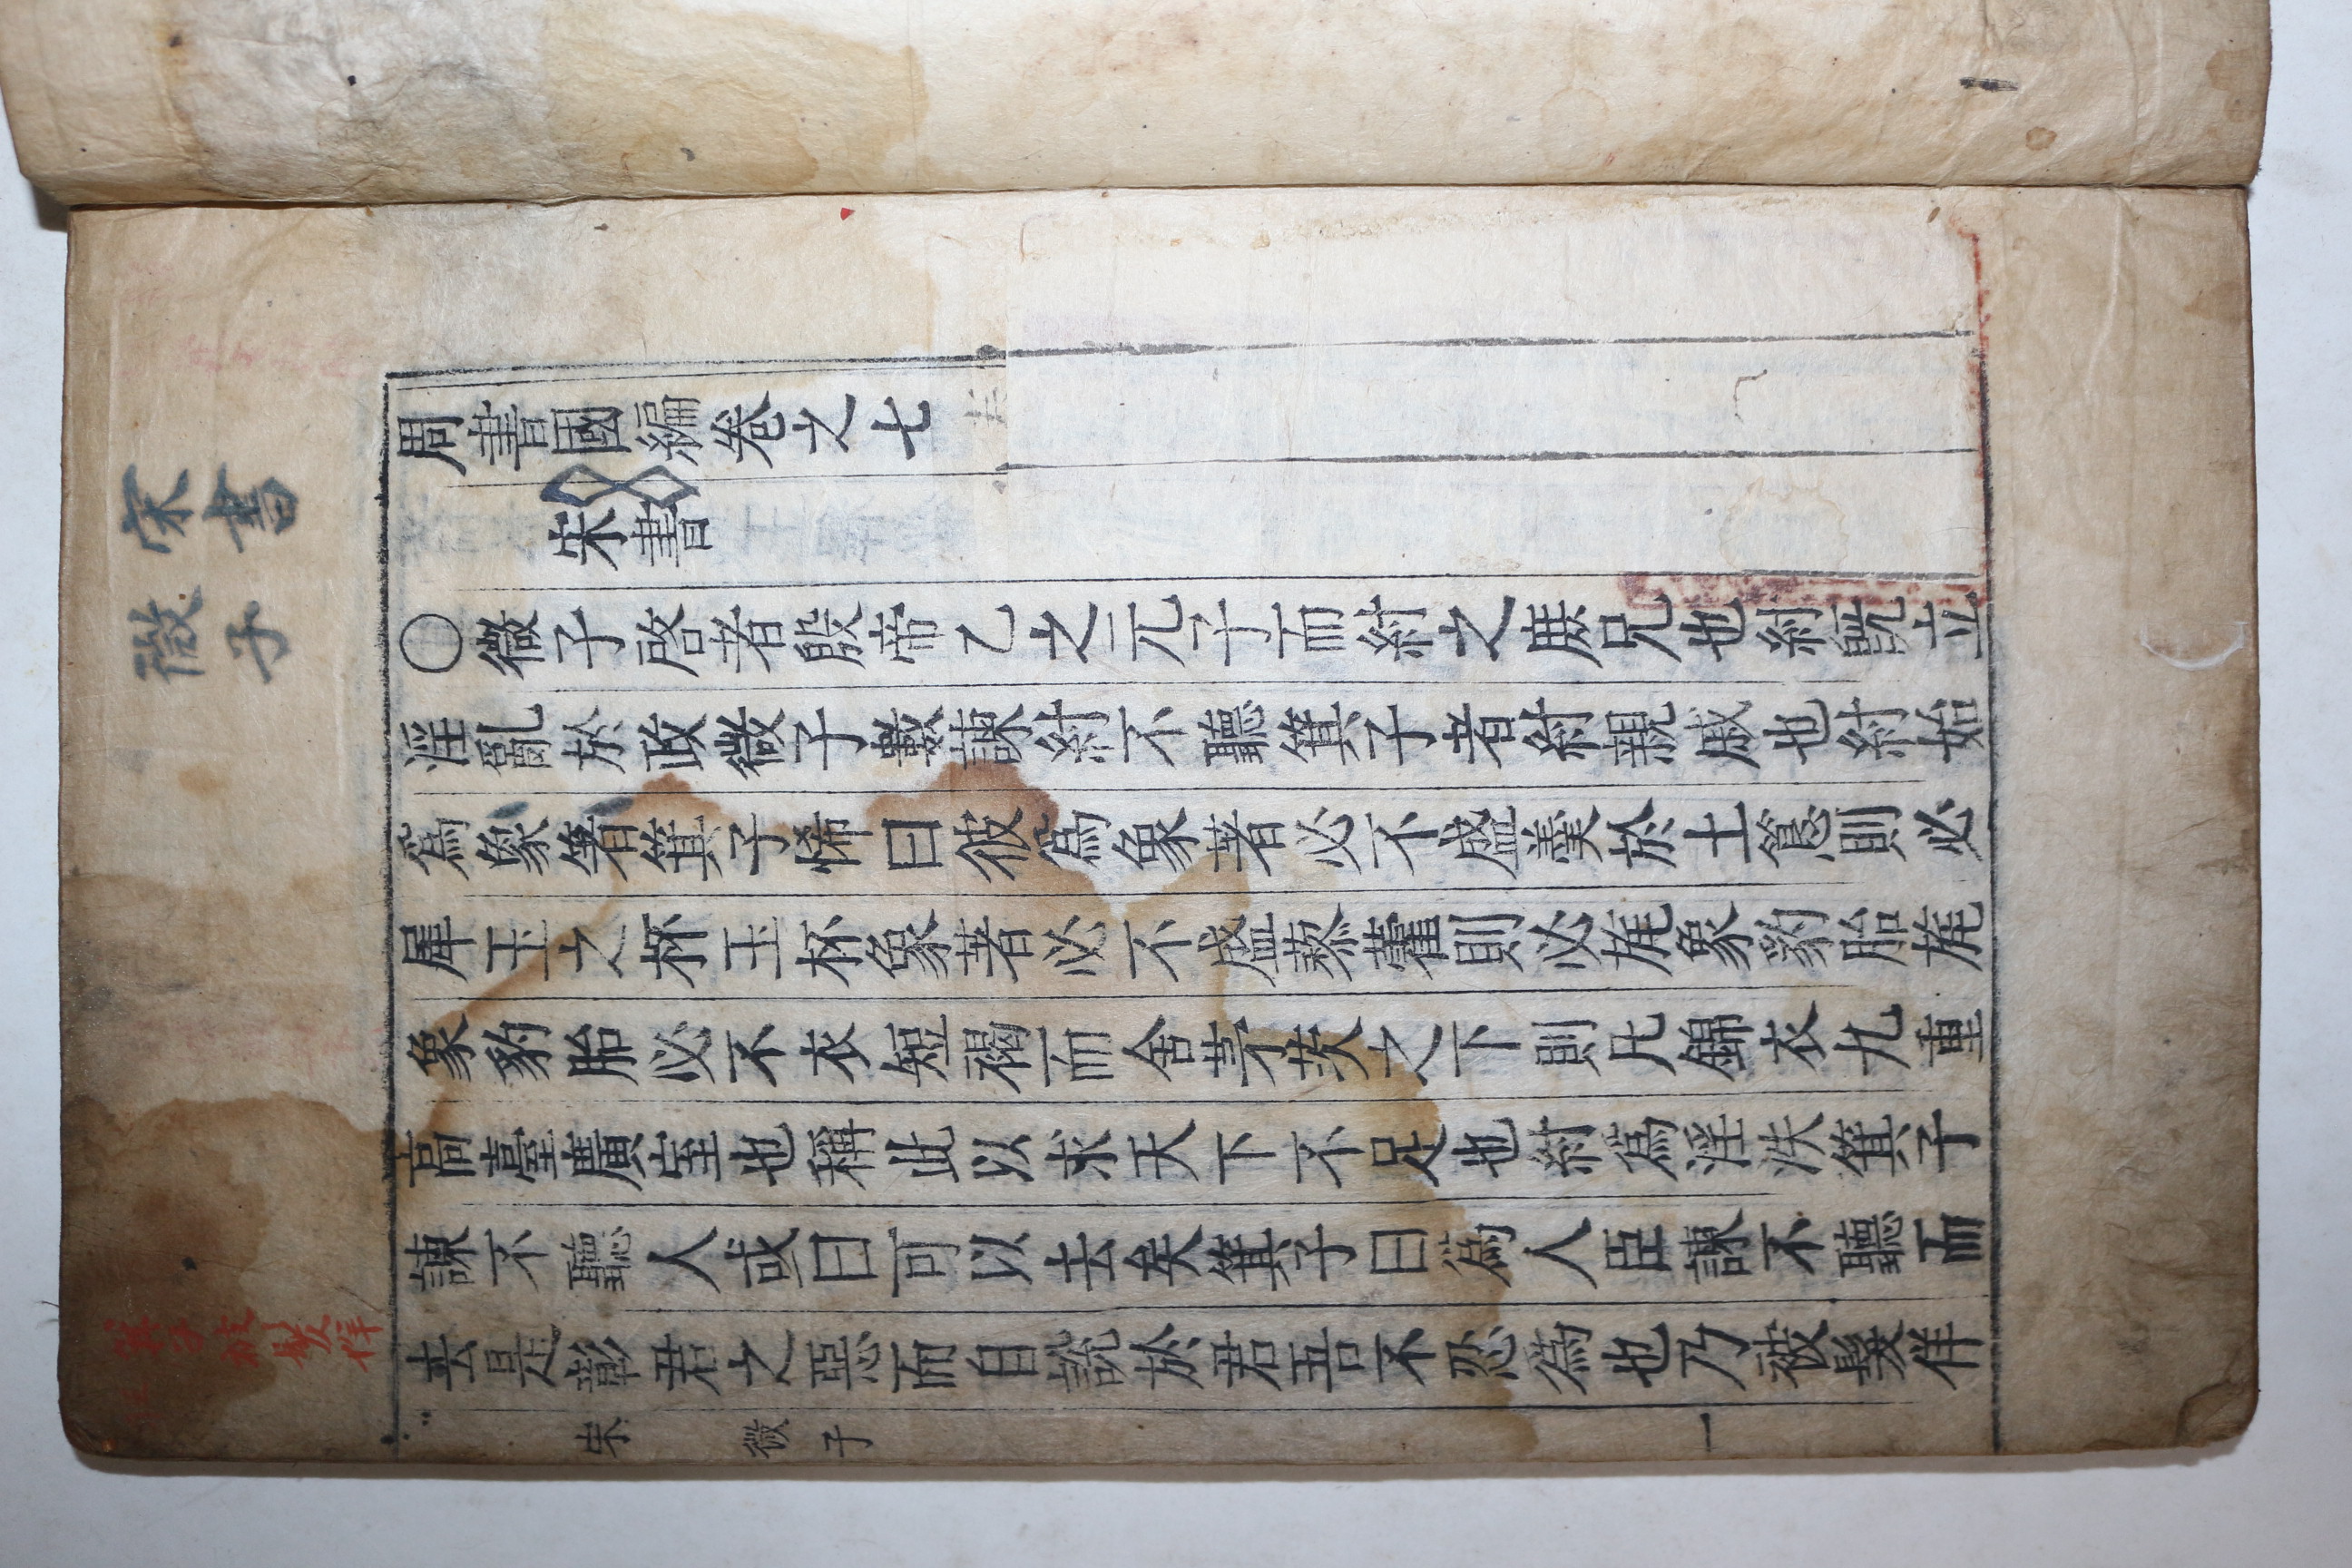 宋書
微子
周書國編卷之七
宋書
○微子啓者殷帝乙之元子而紂之庶兄也紂旣立
淫亂於政微子數諫紂不聽箕子者紂親戚也紂始
爲象箸箕子悕曰彼爲象著必不盛羹於土簋則必
犀玉之杯玉杯象著必不盛菽藿則必旄象豹胎旄
象豹胎必不衣短褐而舍茅茨之下則凡錦衣九重
高臺廣室也稱此以求天下不足也紂爲淫泆箕子
諫不聽人或曰可以去矣箕子曰爲人臣諫不聽而
去是彰君之惡而自說於君吾不忍爲也乃被髮佯
箕子被髮佯
宋 微子 一